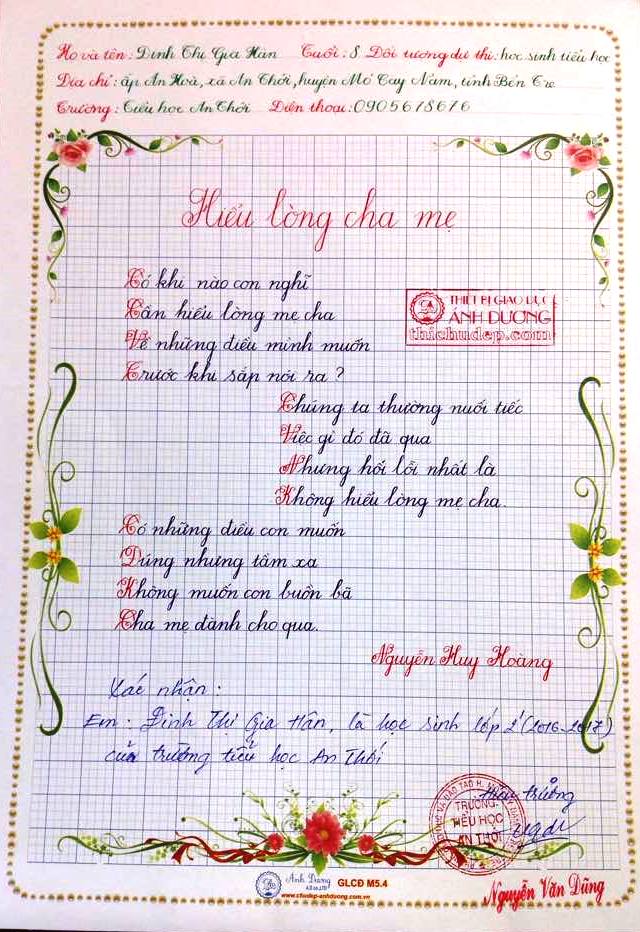 Họ và tên : Đinh Thị Gia Hân Tuổi : 8 Đối tượng dự thi : học sinh tiểu học
Địa chỉ : ấp An Hoà, xã An Thới, huyện Mỏ Cày Nam, tỉnh Bến Tre
Trường : Tiểu học An Thới Điện thoại : 0905678676
Hiểu lòng cha mẹ
Có khi nào con nghĩ
Cần hiểu lòng mẹ cha
Về những điều mình muốn
Trước khi sắp nói ra ?
THIẾT BỊ GIÁO DỤC
ÁNH DƯƠNG
thichudep.com
Chúng ta thường nuối tiếc
Việc gì đó đã qua
Nhưng hối lỗi nhất là
Không hiểu lòng mẹ cha.
Có những điều con muốn
Đúng nhưng tầm xa
Không muốn con buồn bã
Cha mẹ đành cho qua.
Nguyễn Huy Hoàng
Xác nhận :
Em : Đinh Thị Gia Hân, là học sinh lớp 2 (2016-2017)
của trường tiểu học An Thới
Hiệu trưởng
TRƯỜNG
TIỂU HỌC
AN THỚI
Nguyễn Văn Dũng
Ánh Dương
GLCĐ M5.4
www.chudep-anhduong.com.vn